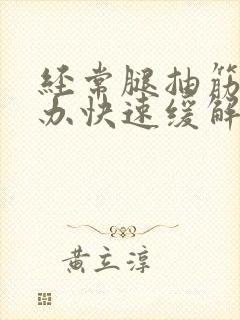 经常腿抽筋
办快速缓解
黄立淳